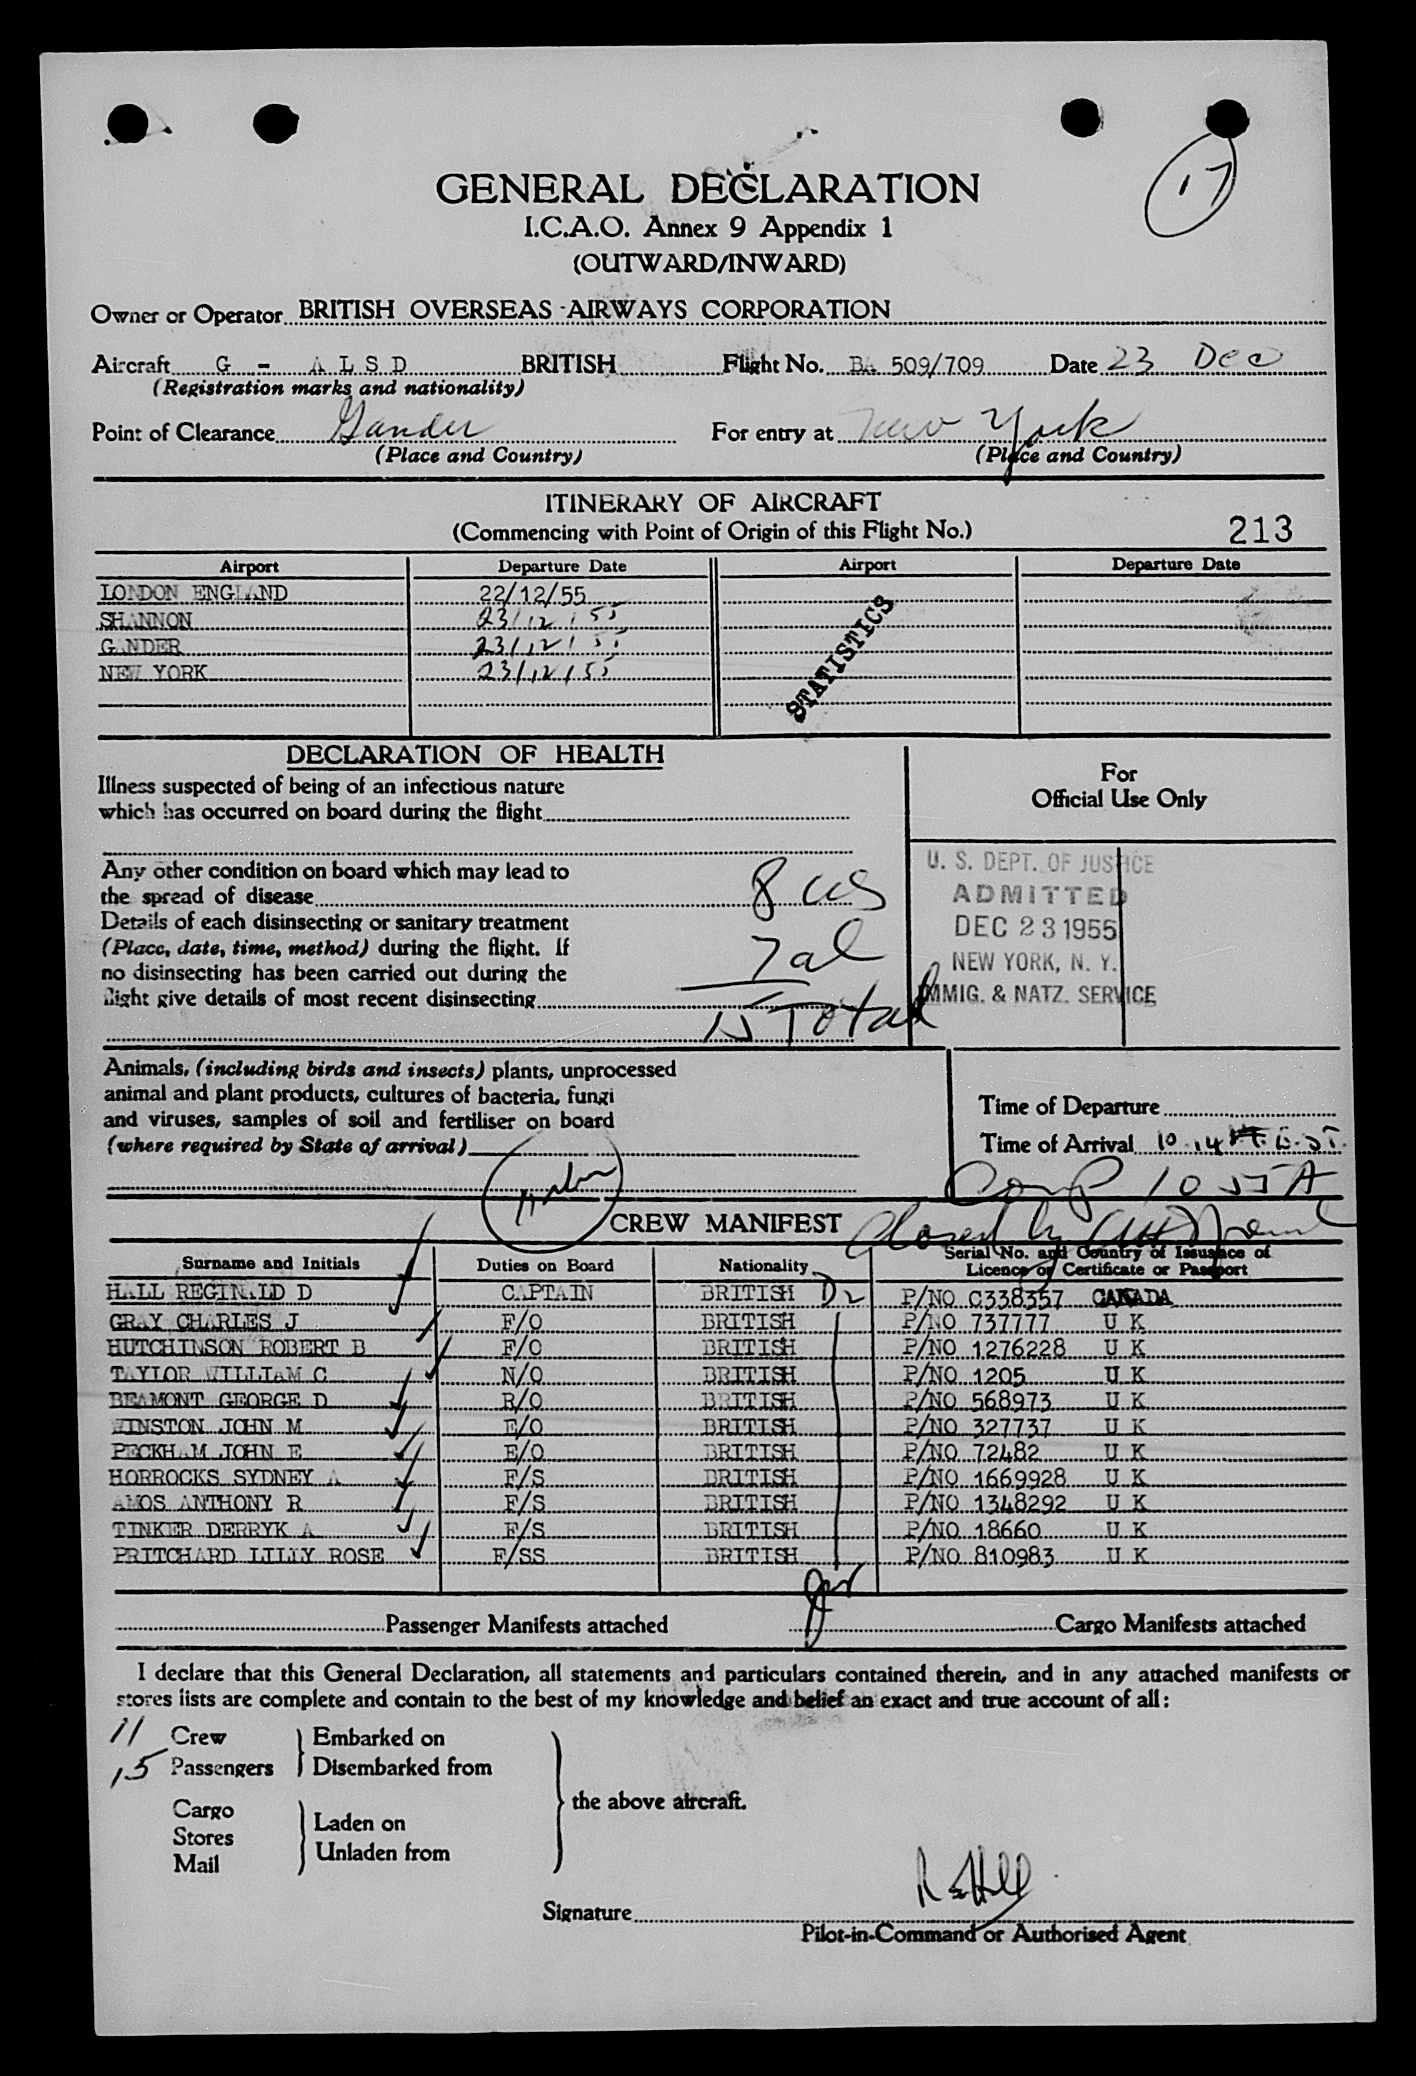 17
GENERAL DECLARATION
I.C.A.O. Annex 9 Appendix 1
(OUTWARD/INWARD)
Owner or Operator BRITISH OVERSEAS AIRWAYS CORPORATION
Aircraft G - ALSD BRITISH Flight No. BA 509/709 Date 23 Dec
(Registration marks and nationality)
Point of Clearance Gander For entry at New York
(Place and Country) (Place and Country)
ITINERARY OF AIRCRAFT
(Commencing with Point of Origin of this Flight No.) 213
Airport Departure Date Airport Departure Date
LONDON ENGLAND 22/12/55
SHANNON 23/12/55
GANDER 23/12/55
NEW YORK 23/12/55
STATISTICS
DECLARATION OF HEALTH
Illness suspected of being of an infectious nature
which has occurred on board during the flight
Any other condition on board which may lead to
the spread of disease
Details of each disinsecting or sanitary treatment
(Place, date, time, method) during the flight. If
no disinsecting has been carried out during the
flight give details of most recent disinsecting
8 us
7 al
15 Total
For
Official Use Only
U. S. DEPT. OF JUSTICE
ADMITTED
DEC 23 1955
NEW YORK, N. Y.
IMMIG. & NATZ. SERVICE
Animals, (including birds and insects) plants, unprocessed
animal and plant products, cultures of bacteria, fungi
and viruses, samples of soil and fertiliser on board
(where required by State of arrival)
Time of Departure
Time of Arrival 10.14 E.ST.
Comp 1055A
Closed by
CREW MANIFEST
Surname and Initials Duties on Board Nationality Serial No. and Country of Issuance of
Licence or Certificate or Passport
HALL REGINALD D CAPTAIN BRITISH D2 P/NO C338357 CANADA
GRAY CHARLES J F/O BRITISH P/NO 737777 U K
HUTCHINSON ROBERT B F/O BRITISH P/NO 1276228 U K
TAYLOR WILLIAM C N/O BRITISH P/NO 1205 U K
BEAMONT GEORGE D R/O BRITISH P/NO 568973 U K
WINSTON JOHN M E/O BRITISH P/NO 327737 U K
PECKHAM JOHN E E/O BRITISH P/NO 72482 U K
HORROCKS SYDNEY A F/S BRITISH P/NO 1669928 U K
AMOS ANTHONY R F/S BRITISH P/NO 1348292 U K
TINKER DERRYK A F/S BRITISH P/NO 18660 U K
PRITCHARD LILLY ROSE F/SS BRITISH P/NO 810983 U K
Passenger Manifests attached Cargo Manifests attached
I declare that this General Declaration, all statements and particulars contained therein, and in any attached manifests or
stores lists are complete and contain to the best of my knowledge and belief an exact and true account of all:
11 Crew Embarked on
15 Passengers Disembarked from
the above aircraft.
Cargo
Stores
Mail
Laden on
Unladen from
Signature
Pilot-in-Command or Authorised Agent